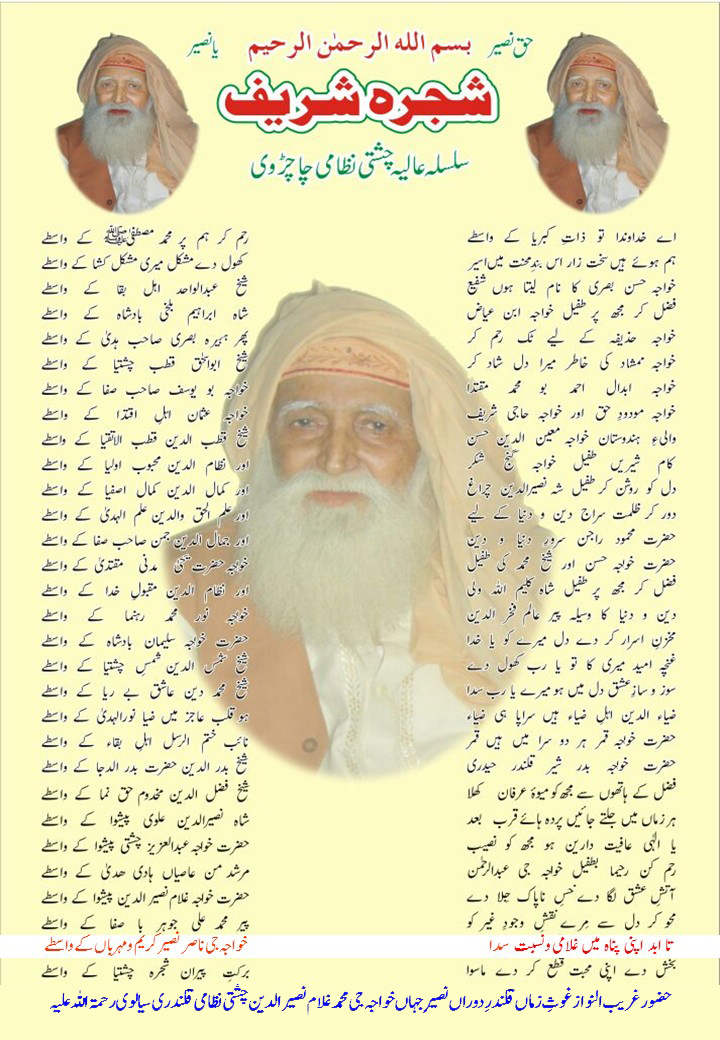 حق نصیر
بسم الله الرحمٰن الرحیم
یا نصیر
شجرہ شریف
سلسلہ عالیہ چشتی نظامی چاچڑوی
اے خداوندا تو ذاتِ کبریا کے واسطے رحم کر ہم پر محمد مصطفیٰ ﷺ کے واسطے
ہم ہوئے ہیں سخت زار اس بندِ محنت میں اسیر کھول دے مشکل میری مشکل کشا کے واسطے
خواجہ حسن بصری کا نام لیتا ہوں شفیع شیخ عبدالواحد اہل بقا کے واسطے
فضل کر مجھ پر طفیل خواجہ ابن عیاض شاہ ابراہیم بلخی بادشاہ کے واسطے
خواجہ حذیفہ کے لیے ٹک رحم کر پھر ہبیرہ بصری صاحب ہدیٰ کے واسطے
خواجہ ممشاد کی خاطر میرا دل شاد کر شیخ ابواسحٰق قطب چشتیا کے واسطے
خواجہ ابدال احمد بو محمد مقتدا خواجہ بو یوسف صاحب صفا کے واسطے
خواجہ مودودِ حق اور خواجہ حاجی شریف خواجہ عثمان اہلِ اقتدا کے واسطے
والیٔ ہندوستان خواجہ معین الدین حسن شیخ قطب الدین قطب الاتقیا کے واسطے
کام شیریں طفیل خواجہ گنج شکر اور نظام الدین محبوب اولیا کے واسطے
دل کو روشن کر طفیل شہ نصیرالدین چراغ اور کمال الدین کمال اصفیا کے واسطے
دور کر ظلمت سراج دین و دنیا کے لیے اور علم الحق والدین علم الہدیٰ کے واسطے
حضرت محمود راجن سرورِ دنیا و دین اور جمال الدین جمن صاحب صفا کے واسطے
حضرت خواجہ حسن اور شیخ محمد کی طفیل خواجہ حضرت یحییٰ مدنی مقتدیٰ کے واسطے
فضل کر مجھ پر طفیل شاہ کلیم اللہ ولی اور نظام الدین مقبولِ خدا کے واسطے
دین و دنیا کا وسیلہ پیر عالم فخر الدین خواجہ نور محمد رہنما کے واسطے
مخزنِ اسرار کر دے دل میرے کو یا خدا حضرت خواجہ سلیمان بادشاہ کے واسطے
غنچہ امید میری کا تو یا رب کھول دے شیخ شمس الدین شمسِ چشتیا کے واسطے
سوز و سازِ عشق دل میں ہو میرے یا رب سدا شیخ محمد دین عاشق بے ریا کے واسطے
ضیاء الدین اہلِ ضیاء ہیں سراپا ہی ضیاء ہو قلب عاجز میں ضیا نورالہدیٰ کے واسطے
حضرت خواجہ قمر ہر دو سرا میں ہیں قمر نائب ختم الرسل اہلِ بقاء کے واسطے
حضرت خواجہ بدر شیر قلندر حیدری شیخ بدر الدین حضرت بدر الدجا کے واسطے
فضل کے ہاتھوں سے مجھ کو میوۂ عرفان کھلا شیخ فضل الدین مخدوم حق نما کے واسطے
ہر زماں میں جلتے جائیں پردہ ہائے قرب بعد شاہ نصیرالدین علوی پیشوا کے واسطے
یا الٰہی عافیت دارین ہو مجھ کو نصیب حضرت خواجہ عبدالعزیز چشتی پیشوا کے واسطے
رحم کن رحیما بطفیل خواجہ جی عبدالرحمٰن مرشد من عاصیاں ہادی ھدیٰ کے واسطے
آتشِ عشق لگا دے خسِ ناپاک جلا دے حضرت خواجہ غلام نصیر الدین پیشوا کے واسطے
محو کر دل سے مرے نقشِ وجودِ غیر کو پیر محمد علی جوہر با صفا کے واسطے
تا ابد اپنی پناہ میں غلامی و نسبت سدا خواجہ جی ناصر نصیر کریم و مہرباں کے واسطے
بخش دے اپنی محبت قطع کر دے ماسوا برکتِ پیران شجرہ چشتیا کے واسطے
حضور غریب النواز غوثِ زماں قلندرِ دوراں نصیرِ جہاں خواجہ جی محمد غلام نصیر الدین چشتی نظامی قلندری سیالوی رحمۃ اللہ علیہ